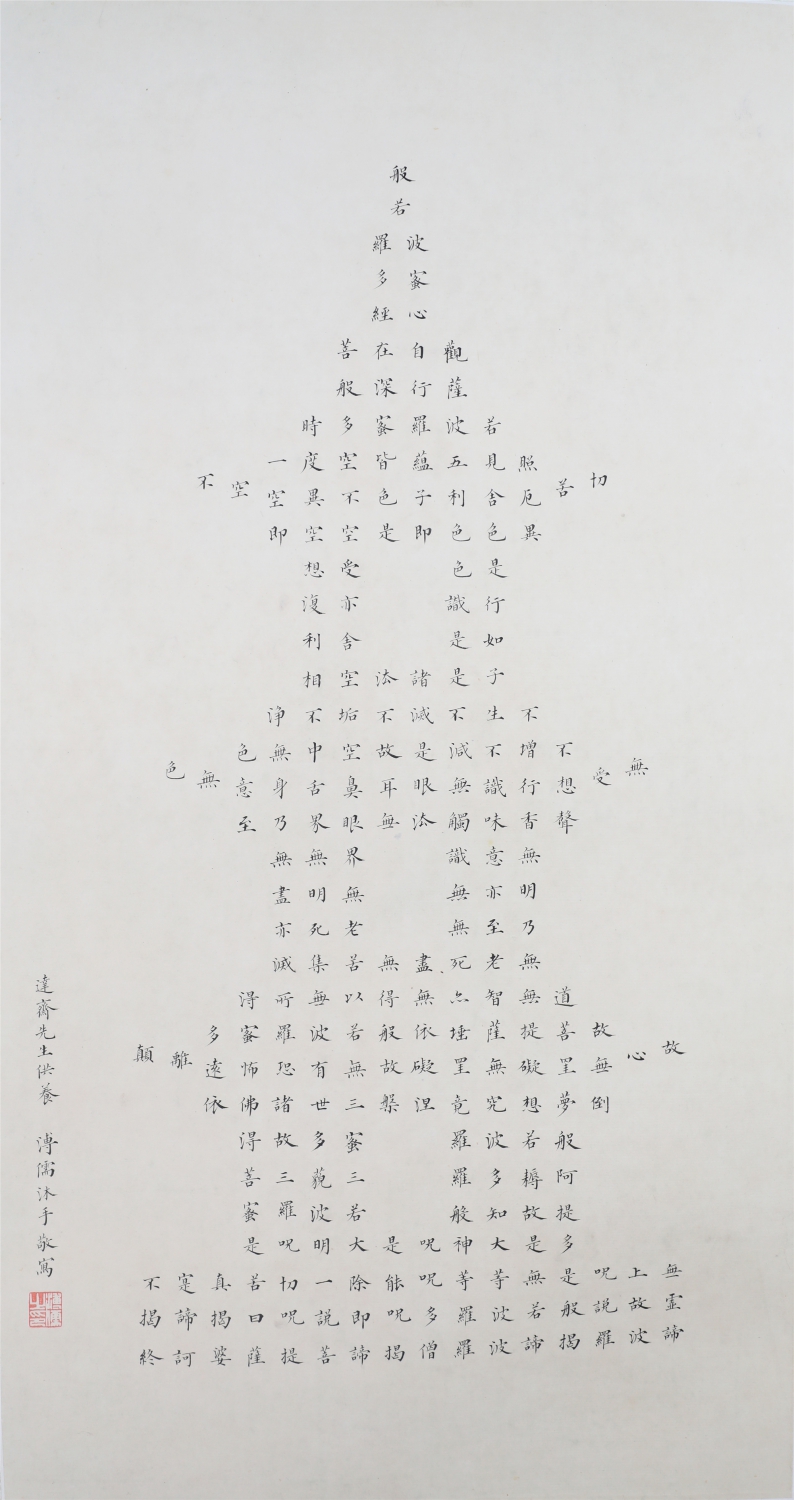 般
若
波羅
蜜多
心經
觀自在菩
薩行深般
若波羅蜜多時
照見五蘊皆空度一
切苦
厄舍利子色不異空
空不
異色色即是空空即
是色受想
行識亦復
如是舍利
子是諸㳒空相
不生不滅不垢不淨
不增不減是故空中無色
無受
想行識無眼耳鼻舌身意
無色
聲香味觸㳒無眼界乃至
無意識界無無
明亦無無明盡
乃至無老死亦
無老死盡無苦集滅
道無智亦無得以無所得
故菩提薩埵依般若波羅蜜多
故心
無罣礙無罣礙故無有恐怖遠
離顛
倒夢想究竟涅槃三世諸佛依
般若波羅蜜多故得
阿耨多羅三藐三菩
提故知般若波羅蜜
多是大神呪是大明呪是
無上呪是無等等呪能除一切苦真寔不
靈故説般若波羅多呪即説呪曰揭諦揭
諦波羅揭諦波羅僧揭諦菩提薩婆訶終
達齋先生供養 溥儒沐手敬寫